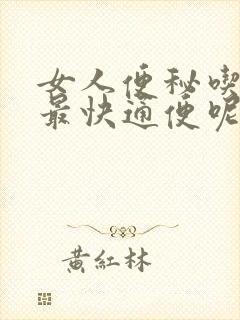 女人便秘喫
最快通便呢
黃紅林